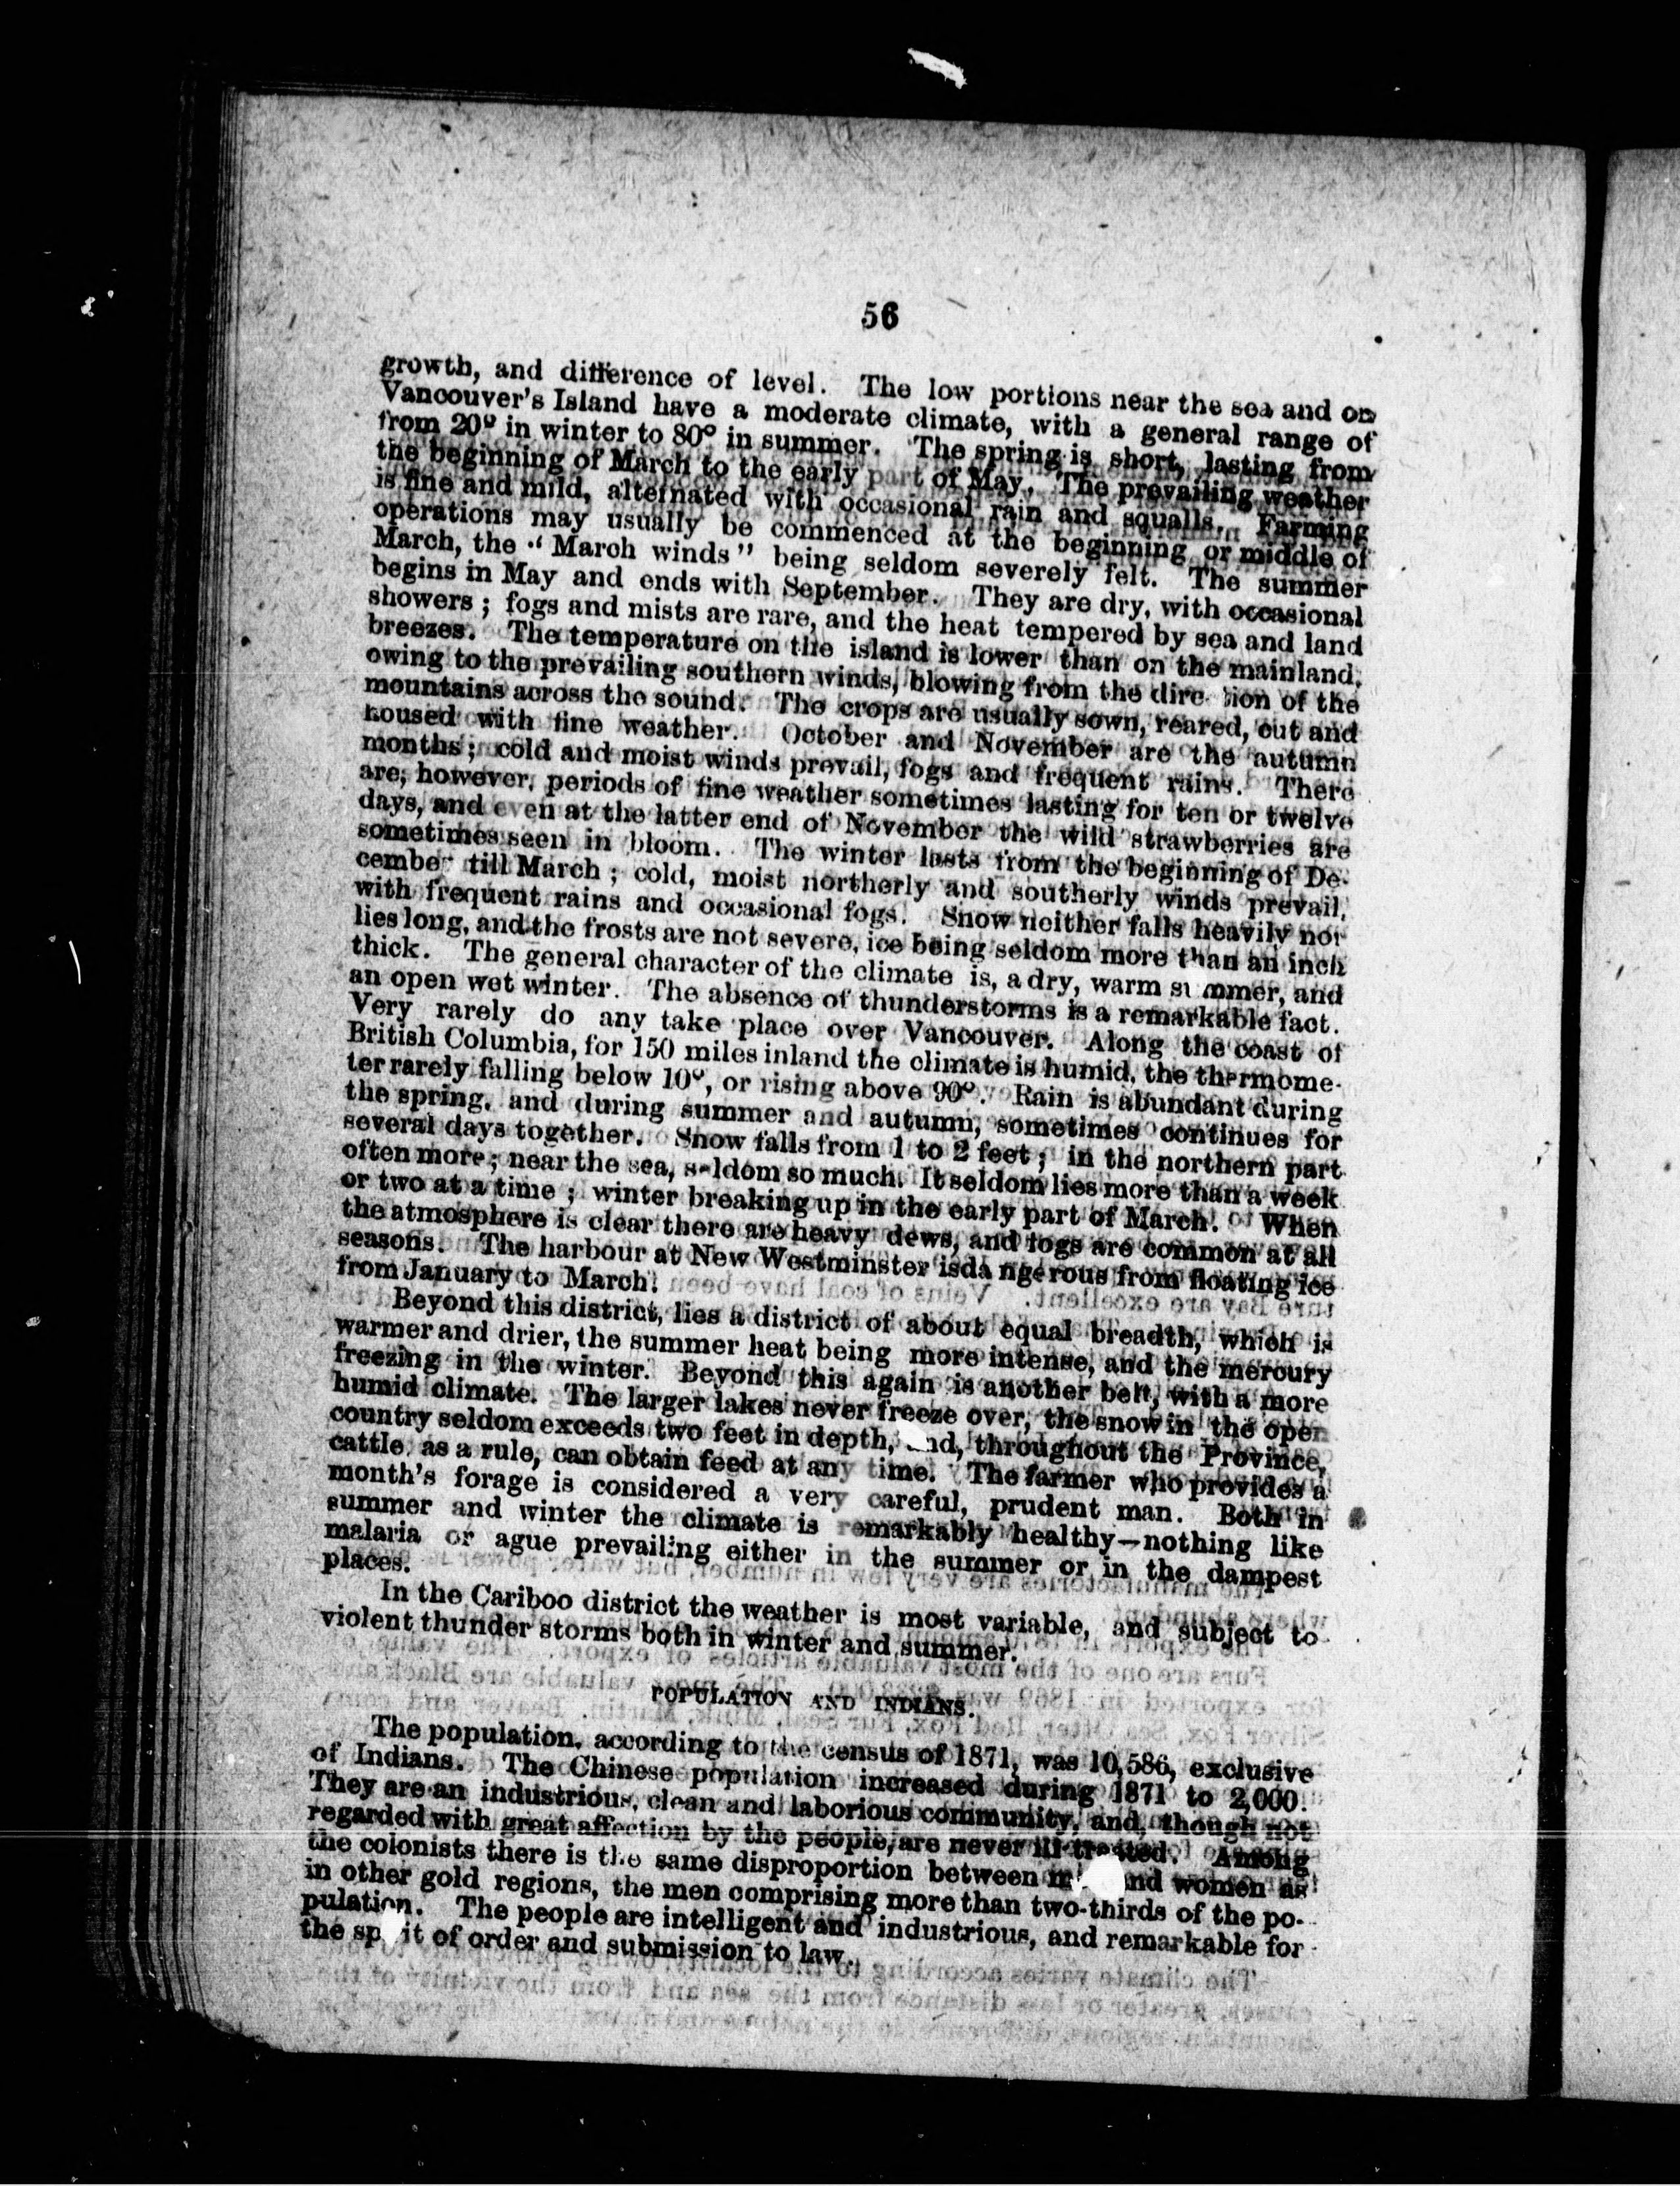 56
growth, and difference of level. The low portions near the sea and on
Vancouver's Island have a moderate climate, with a general range of
from 20° in winter to 80° in summer. The spring is short, lasting from
the beginning of March to the early part of May. The prevailing weather
is fine and mild, alternated with occasional rain and squalls. Farming
operations may usually be commenced at the beginning or middle of
March, the "March winds" being seldom severely felt. The summer
begins in May and ends with September. They are dry, with occasional
showers; fogs and mists are rare, and the heat tempered by sea and land
breezes. The temperature on the island is lower than on the mainland,
owing to the prevailing southern winds, blowing from the direction of the
mountains across the sound. The crops are usually sown, reared, cut and
housed with fine weather. October and November are the autumn
months; cold and moist winds prevail, fogs and frequent rains. There
are, however, periods of fine weather sometimes lasting for ten or twelve
days, and even at the latter end of November the wild strawberries are
sometimes seen in bloom. The winter lasts from the beginning of De-
cember till March; cold, moist northerly and southerly winds prevail,
with frequent rains and occasional fogs. Snow neither falls heavily nor
lies long, and the frosts are not severe, ice being seldom more than an inch
thick. The general character of the climate is, a dry, warm summer, and
an open wet winter. The absence of thunderstorms is a remarkable fact.
Very rarely do any take place over Vancouver. Along the coast of
British Columbia, for 150 miles inland the climate is humid, the thermome-
ter rarely falling below 10°, or rising above 90°. Rain is abundant during
the spring, and during summer and autumn, sometimes continues for
several days together. Snow falls from 1 to 2 feet; in the northern part
often more; near the sea, seldom so much. It seldom lies more than a week
or two at a time; winter breaking up in the early part of March. When
the atmosphere is clear there are heavy dews, and fogs are common at all
seasons. The harbour at New Westminster isda ngerous from floating ice
from January to March.
Beyond this district, lies a district of about equal breadth, which is
warmer and drier, the summer heat being more intense, and the mercury
freezing in the winter. Beyond this again is another belt, with a more
humid climate. The larger lakes never freeze over, the snow in the open
country seldom exceeds two feet in depth, and, throughout the Province,
cattle, as a rule, can obtain feed at any time. The farmer who provides a
month's forage is considered a very careful, prudent man. Both in
summer and winter the climate is remarkably healthy—nothing like
malaria or ague prevailing either in the summer or in the dampest
places.
In the Cariboo district the weather is most variable, and subject to
violent thunder storms both in winter and summer.
POPULATION AND INDIANS.
The population, according to the census of 1871, was 10,586, exclusive
of Indians. The Chinese population increased during 1871 to 2,000.
They are an industrious, clean and laborious community, and, though not
regarded with great affection by the people, are never ill-treated. Among
the colonists there is the same disproportion between and women as
in other gold regions, the men comprising more than two-thirds of the po-
pulation. The people are intelligent and industrious, and remarkable for
the spirit of order and submission to law.